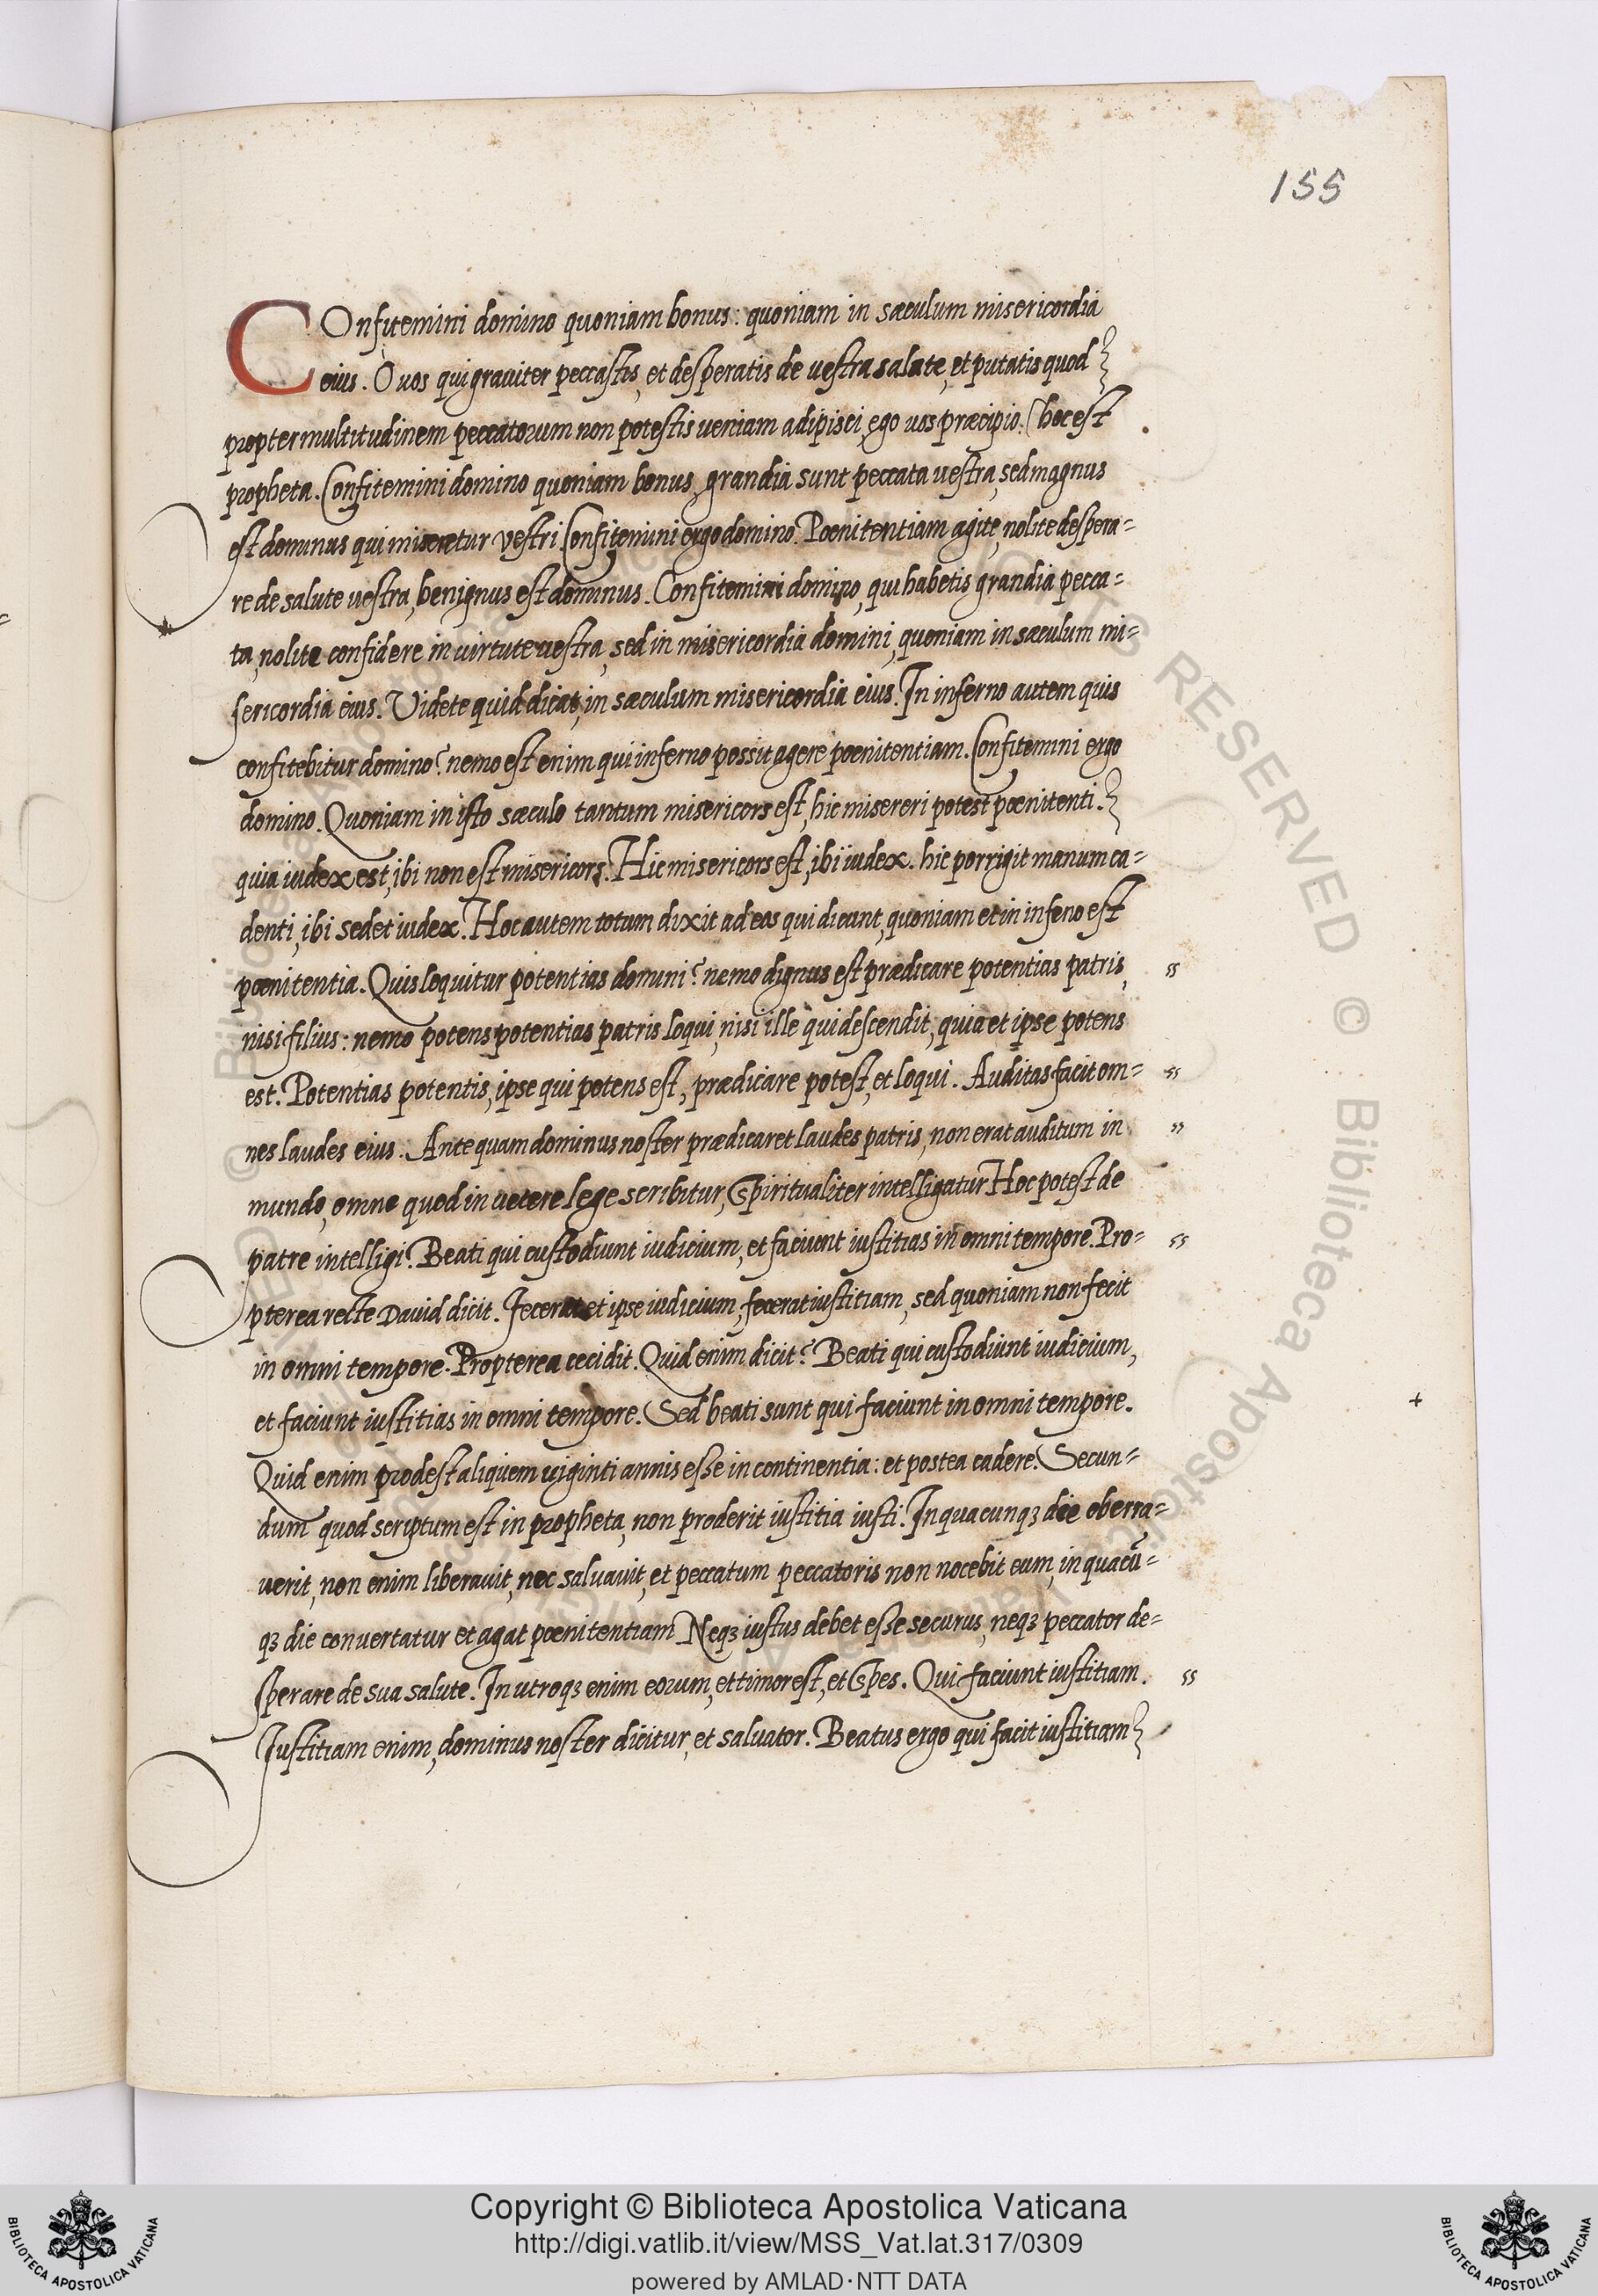 155
COnfitemini domino quoniam bonus: quoniam in sæculum misericordia
eius. O uos qui grauiter peccastis, et desperatis de vestra salute, et putatis quod
propter multitudinem peccatorum non potestis ueniam adipisci, ego uos præcipio. (hoc est
propheta. Confitemini domino quoniam bonus, grandia sunt peccata vestra, sed magnus
est dominus qui miseretur vestri Confitemini ergo domino. Pœnitentiam agite, nolite despera=
re de salute uestra, benignus est dominus. Confitemini domino, qui habetis grandia pecca=
ta, nolite confidere in uirtute uestra, sed in misericordia domini, quoniam in sæculum mi=
sericordia eius. Videte quid dicat, in sæculum misericordia eius. In inferno autem quis
confitebitur domino? nemo est enim qui inferno possit agere pœnitentiam. Confitemini ergo
domino. Quoniam in isto sæculo tantum misericors est, hic misereri potest pœnitenti.
quia iudex est, ibi non est misericors. Hic misericors est, ibi iudex. hic porrigit manum ca=
denti, ibi sedet iudex. Hoc autem totum dixit ad eos qui dicunt, quoniam et in infeno est
pœnitentia. Quis loquitur potentias domini? nemo dignus est prædicare potentias patris,
nisi filius: nemo potens potentias patris loqui, nisi ille qui descendit, quia et ipse potens
est. Potentias potentis, ipse qui potens est, prædicare potest, et loqui. Auditas facit om=
nes laudes eius. Ante quam dominus noster prædicaret laudes patris, non erat auditum in
mundo, omne quod in uetere lege scribitur, Spiritualiter intelligatur Hoc potest de
patre intelligi. Beati qui custodiunt iudicium, et faciunt iustitias in omni tempore. Pro=
pterea recte David dicit. Fecerat et ipse iudicium, fecerat iustitiam, sed quoniam non fecit
in omni tempore. Propterea cecidit. Quid enim dicit? Beati qui custodiunt iudicium,
et faciunt iustitias in omni tempore. Sed beati sunt qui faciunt in omni tempore.
Quid enim prodest aliquem uiginti annis esse in continentia: et postea cadere. Secun=
dum quod scriptum est in propheta, non proderit iustitia iusti. In quacunqꝫ die oberra=
uerit, non enim liberauit, nec saluauit, et peccatum peccatoris non nocebit eum, in quacū=
qꝫ die convertatur et agat pœnitentiam Neqꝫ iustus debet esse securus, neqꝫ peccator de=
sperare de sua salute. In utroqꝫ enim eorum, et timor est, et Spes. Qui faciunt iustitiam.
Iustitiam enim, dominus noster dicitur, et saluator. Beatus ergo qui facit iustitiam
Copyright © Biblioteca Apostolica Vaticana
http://digi.vatlib.it/view/MSS_Vat.lat.317/0309
powered by AMLAD·NTT DATA
BIBLIOTECA APOSTOLICA VATICANA
BIBLIOTECA APOSTOLICA VATICANA